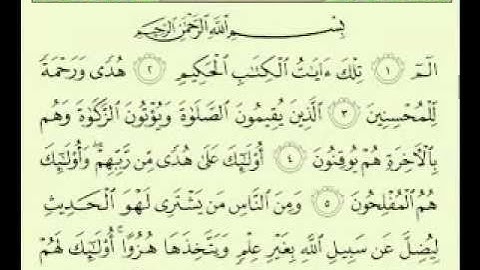 بِسْمِ ٱللَّهِ ٱلرَّحْمَٰنِ ٱلرَّحِيمِ
الٓمٓ ١ تِلْكَ ءَايَٰتُ ٱلْكِتَٰبِ ٱلْحَكِيمِ ٢ هُدًى وَرَحْمَةً
لِّلْمُحْسِنِينَ ٣ ٱلَّذِينَ يُقِيمُونَ ٱلصَّلَوٰةَ وَيُؤْتُونَ ٱلزَّكَوٰةَ وَهُم
بِٱلْأَخِرَةِ هُمْ يُوقِنُونَ ٤ أُو۟لَٰٓئِكَ عَلَىٰ هُدًى مِّن رَّبِّهِمْ ۖ وَأُو۟لَٰٓئِكَ
هُمُ ٱلْمُفْلِحُونَ ٥ وَمِنَ ٱلنَّاسِ مَن يَشْتَرِى لَهْوَ ٱلْحَدِيثِ
لِيُضِلَّ عَن سَبِيلِ ٱللَّهِ بِغَيْرِ عِلْمٍ وَيَتَّخِذَهَا هُزُوًا ۚ أُو۟لَٰٓئِكَ لَهُمْ